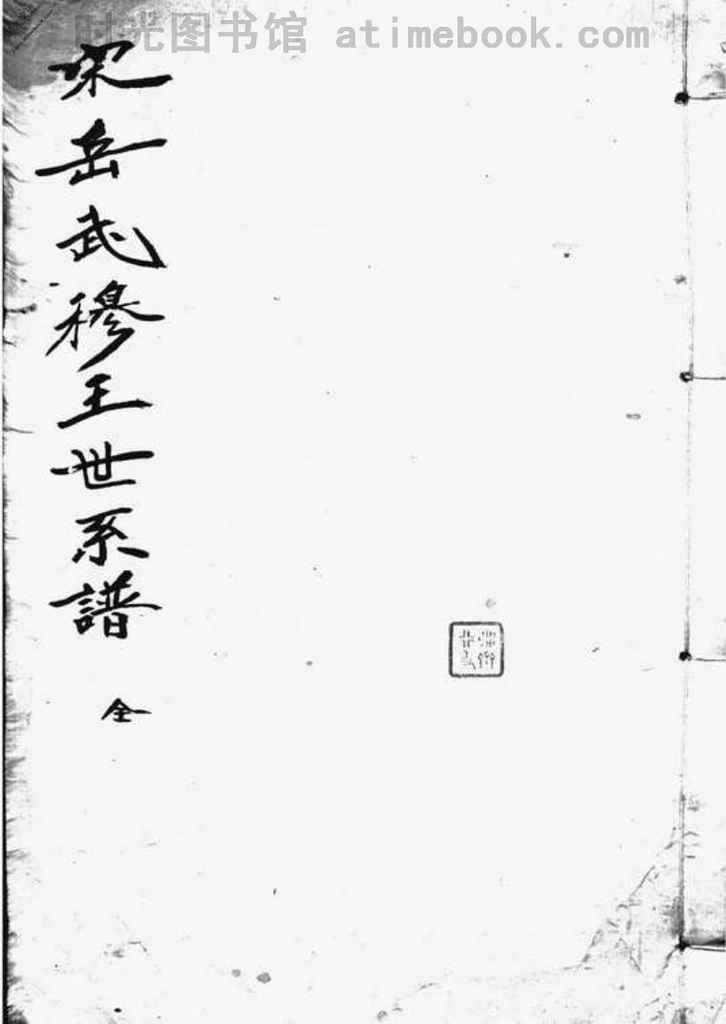 时光图书馆 atimebook.com
宋岳武穆王世系譜
全